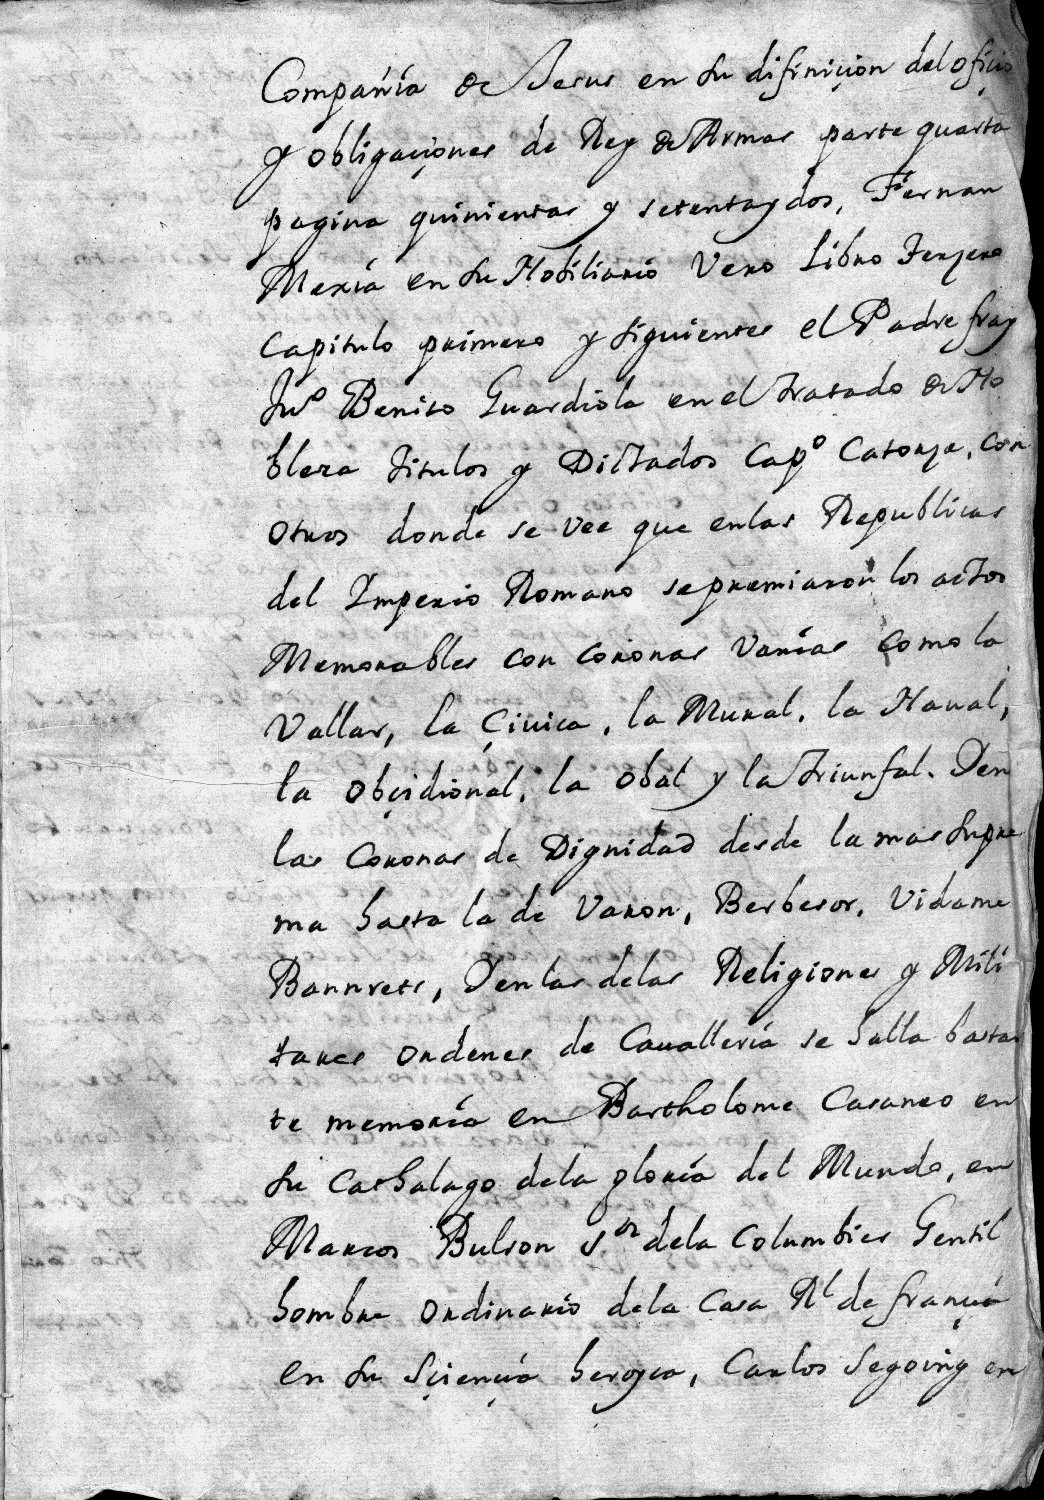 Compañía de Jesus en su difiniçion del ofiçio
y obligaçiones de Rey de Armas parte quarta
pagina quinientas y setentaydos, Fernan
Mexía en su Nobiliario Vero Libro Terçero
Capitulo primero y siguientes el Padre fray
Juº Benito Guardiola en el tratado de No
bleza titulos y Dictados Capº Catorçe, con
otros donde se vee que en las Republicas
del Imperio Romano se premiaron los actos
Memorables con coronas varias como la
Vallar, la Çiuica, la Mural, la Naual,
la obçidional, la obal y la triunfal. Yen
las Coronas de Dignidad desde la mas supre
ma hasta la de Varon, Berbesor, Vidame
Bannrets, Yen las delas Religiones y Mili
tares ordenes de Cauallería se halla bastan
te memoria en Bartholome Casaneo en
su Cathalago dela gloria del Mundo, en
Marcos Bulson Sor dela Columbier Gentil
hombre ordinario dela Casa Rl de françia
en su Sçiençia heroyca, Carlos Segoing en